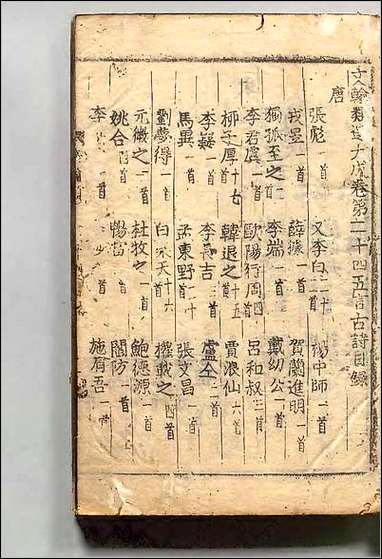 文翰類選大成卷第二十四五言古詩目錄
唐
張彪一首 又李白二十 楊中師一首
戎昱一首 薛據一首 賀蘭進明一首
獨孤至之一 李端一首 戴幼公一首
李君虞一首 歐陽行周四 呂和叔二首
柳子厚十七 韓退之十五 賈浪仙六首
李翶一首 李長吉三首 盧仝二首
馬異一首 孟東野十首 張文昌一首
劉夢得一首 白樂天十六 權載之四首
元微之一首 杜牧之一首 鮑德源一首
姚合四首 暢當一首 閻防一首
李 一首 施肩吾一首